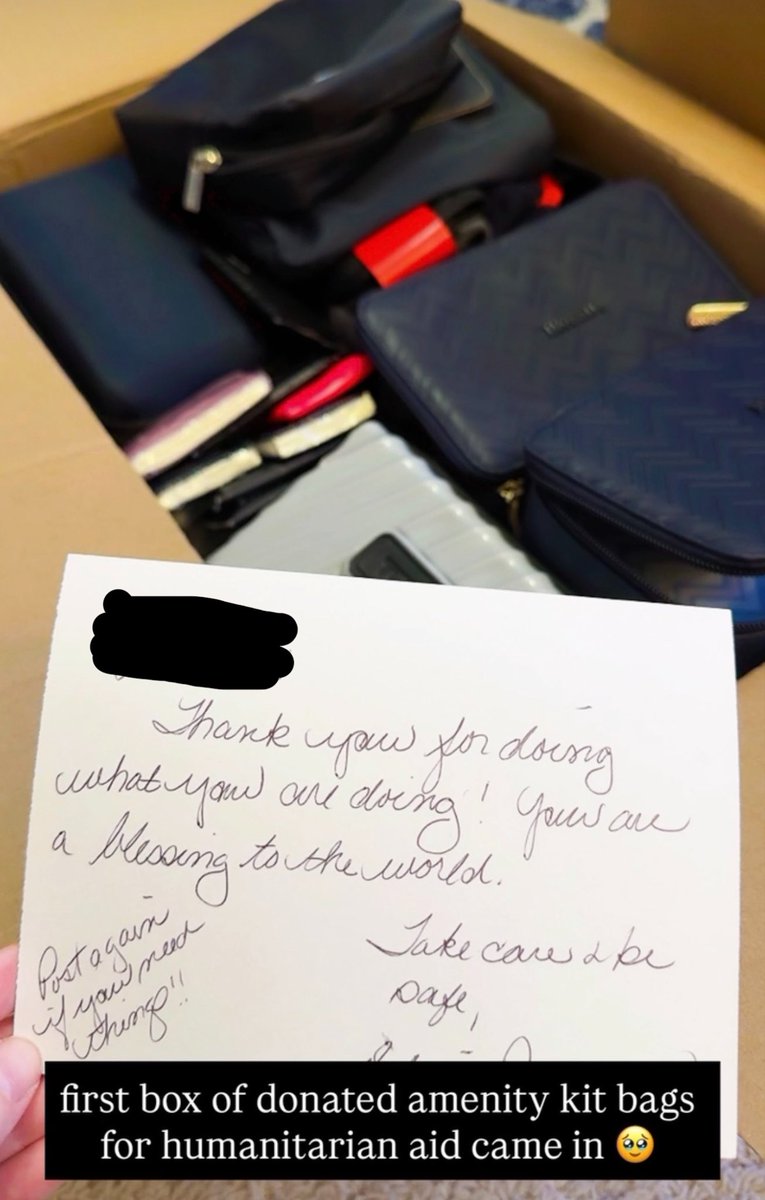 Thank you for doing
what you are doing! You are
a blessing to the world.
Take care & be
safe,
Post again
if you need
things!!
first box of donated amenity kit bags
for humanitarian aid came in 🥹